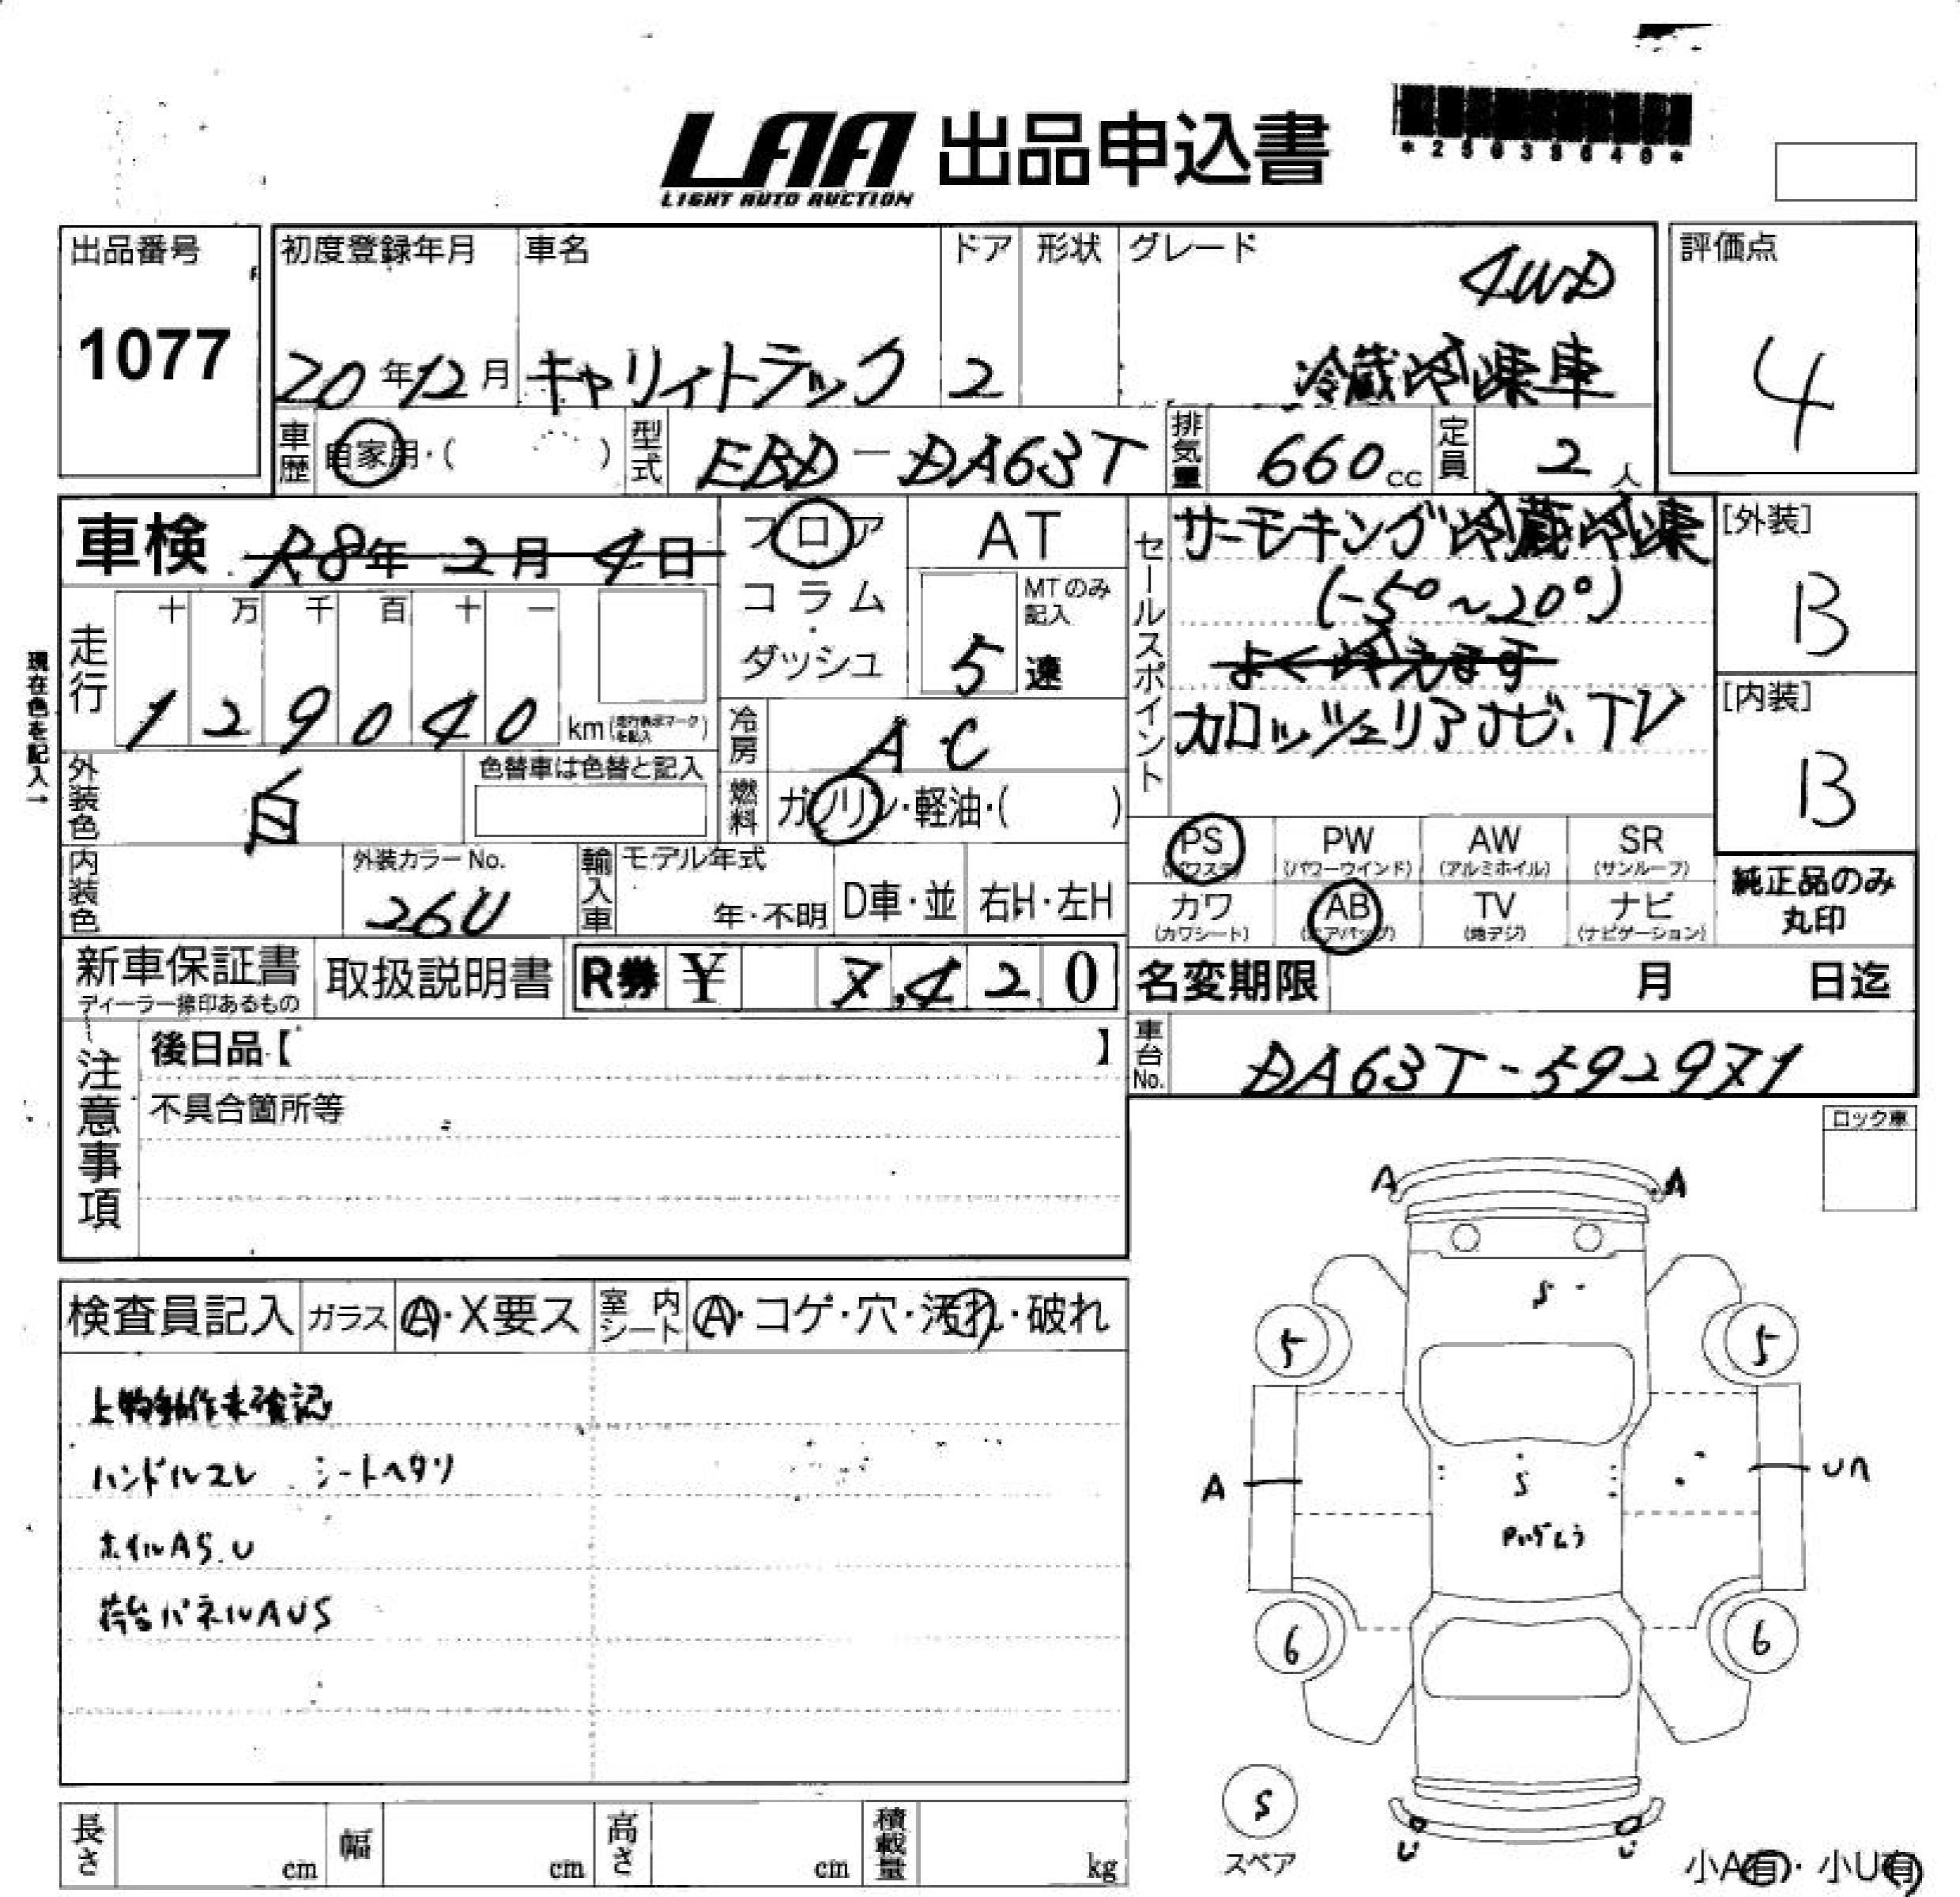 LAA 出品申込書
LIGHT AUTO AUCTION
*25039640*
出品番号
1077
初度登録年月
20年12月
車名
キャリイトラック
ドア
2
形状
グレード
4WD
冷蔵冷凍車
評価点
4
車歴
自家用・( )
型式
EBD-DA63T
排気量
660cc
定員
2人
車検 R8年2月4日
フロア
コラム
・
ダッシュ
AT
MTのみ
記入
5速
セールスポイント
サーモキング冷蔵冷凍
(-5°~20°)
よく冷えます
カロッツェリアナビ、TV
[外装]
B
[内装]
B
現在色を記入→
走行
十 万 千 百 十 一
1 2 9 0 4 0 km(走行表示マークを記入)
冷房
A・C
外装色
白
色替車は色替と記入
燃料
ガソリン・軽油・( )
内装色
外装カラーNo.
26U
輸入車
モデル年式
年・不明
D車・並
右H・左H
PS
(パワステ)
PW
(パワーウインド)
AW
(アルミホイル)
SR
(サンルーフ)
カワ
(カワシート)
AB
(エアバッグ)
TV
(地デジ)
ナビ
(ナビゲーション)
純正品のみ
丸印
新車保証書
ディーラー捺印あるもの
取扱説明書
R券 ¥ 7,420
名変期限 月 日迄
注意事項
後日品【 】
不具合箇所等
車台No.
DA63T-592971
ロック車
検査員記入
ガラス
A・X要ス
室内シート
A・コゲ・穴・汚れ・破れ
上物動作未確認
ハンドルスレ シートヘタリ
ホイルAS.U
荷台パネルAUS
A A
S
5 5
A
S
6 6
S
スペア
U U
小A有・小U有
長さ cm
幅 cm
高さ cm
積載量 kg